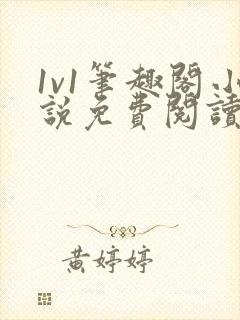 1v1筆趣閣.
說免費閱讀
黃婷婷